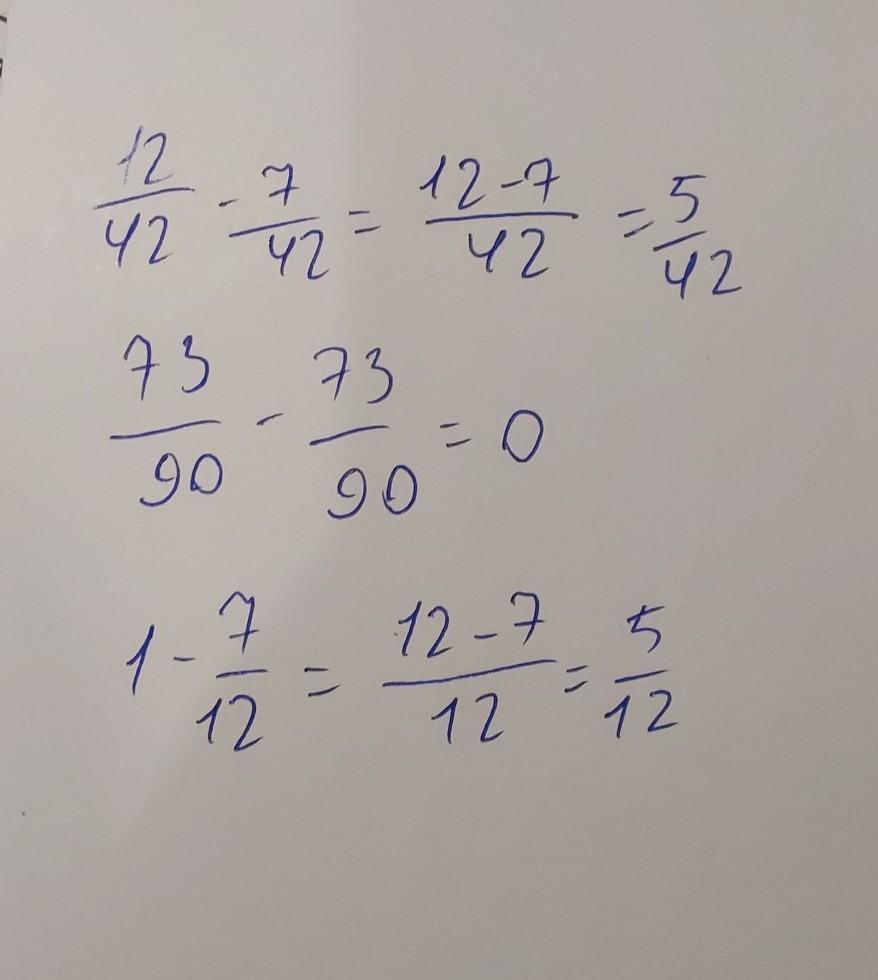 12/42 - 7/42 = 12-7/42 = 5/42
73/90 - 73/90 = 0
1 - 7/12 = 12-7/12 = 5/12